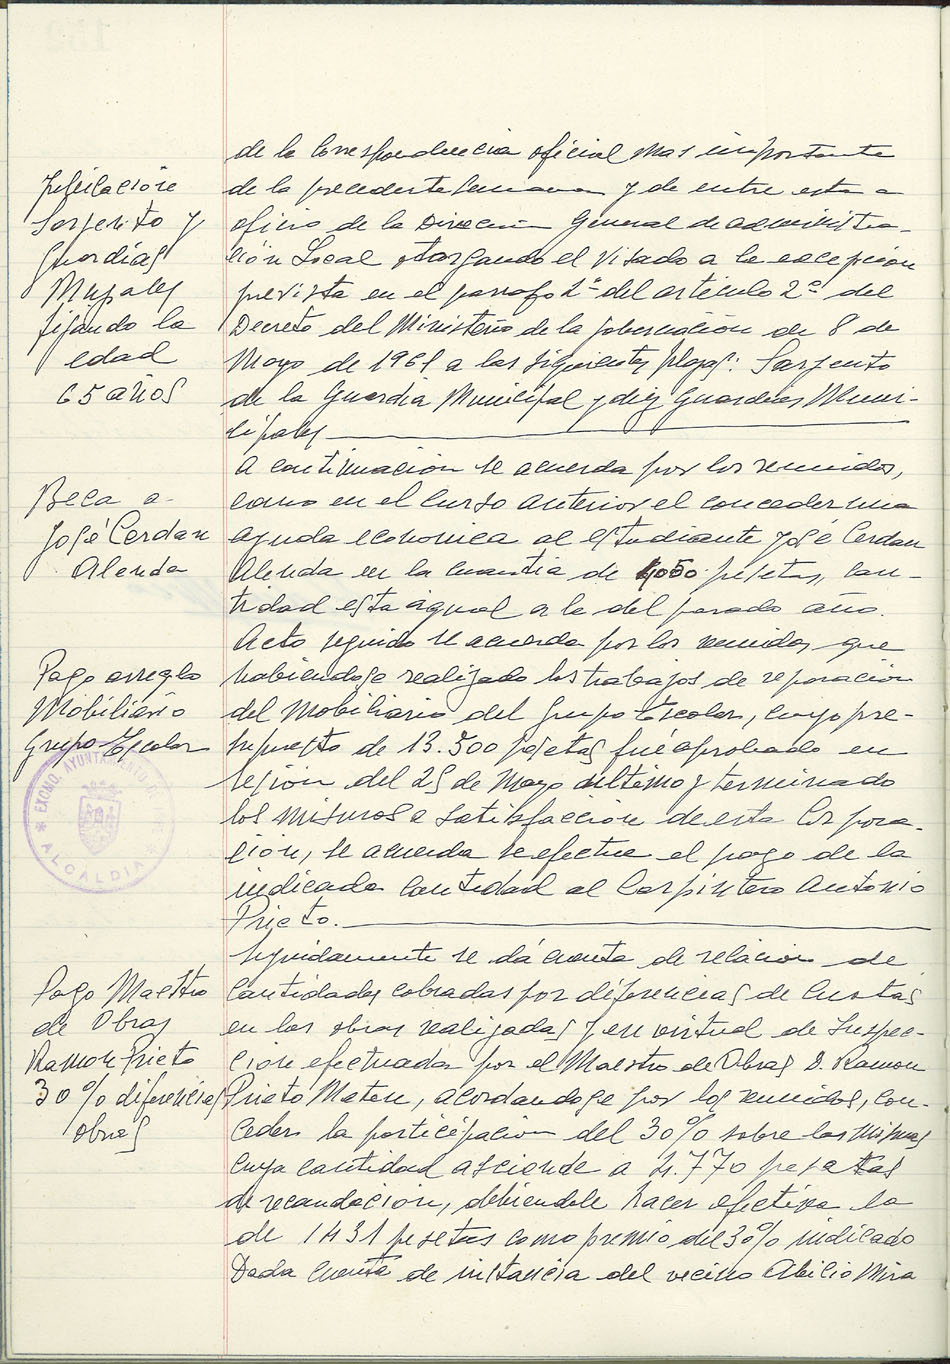 de la correspondencia oficial mas importante
Jubilacion
de la precedente semana y de entre esta a
Sargento y
oficio de la Direccion General de administra-
Guardias
ción Local otorgando el visado a la excepción
Mupales
prevista en el parrafo 2º del articulo 2º del
fijando la
Decreto del Ministerio de la gobernación de 8 de
edad
Mayo de 1961 a las siguientes plazas: Sargento
65 años
de la Guardia Municipal y diez Guardias Muni-
cipales
A continuación se acuerda por los reunidos,
Beca a
como en el curso anterior el conceder una
José Cerdan
ayuda economica al estudiante José Cerdan
Alenda
Alenda en la cuantia de 4050 pesetas, can-
tidad esta igual a la del pasado año.
Acto seguido se acuerda por los reunidos que
Pago arreglo
habiendose realizado los trabajos de reparación
Mobiliario
del Mobiliario del Grupo Escolar, cuyo pre-
Grupo Escolar
supuesto de 13.500 pesetas fué aprobado en
sesion del 25 de Mayo último y terminado
los mismos a satisfacción de esta Corpora-
ción, se acuerda se efectue el pago de la
indicada cantidad al Carpintero Antonio
Prieto.
EXCMO. AYUNTAMIENTO DE
ALCALDIA
Seguidamente se dá cuenta de relacion de
Pago Maestro
cantidades cobradas por diferencias de cuotas
de Obras
en las obras realizadas y en virtud de Inspec-
Ramon Prieto
ción efectuada por el Maestro de Obras D. Ramon
30% diferencias
Prieto Maten, acordandose por los reunidos, con-
obras
ceder la participacion del 30% sobre las mismas
cuya cantidad asciende a 4.770 pesetas
de recaudación, debiendole hacer efectiva la
de 1431 pesetas como premio del 30% indicado
Dada cuenta de instancia del vecino Abilio Mira